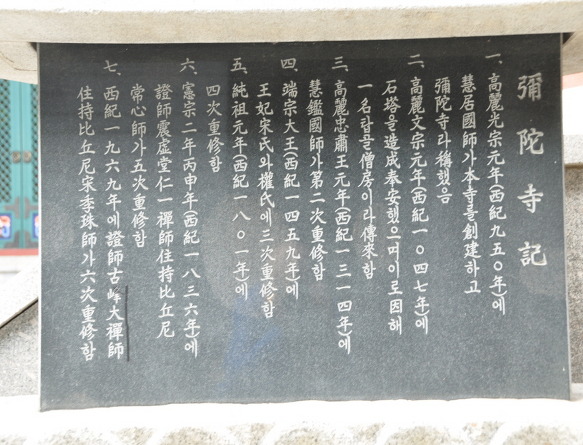 彌陀寺記
一. 高麗光宗元年(西紀九五0年)에
慧居國師가 本寺를 創建하고
彌陀寺라 稱했음
二. 高麗文宗元年(西紀一0四七年)에
石塔을 造成奉安했으며 이로 因해
一名 탑골僧房이라 傳來함
三. 高麗忠肅王元年(西紀一三一四年)에
慧鑑國師가 第二次重修함
四. 端宗大王(西紀一四五九年)에
王妃宋氏와 權氏에 三次重修함
五. 純祖元年(西紀一八0一年)에
四次重修함
六. 憲宗二年丙申年(西紀一八三六年)에
證師震虛堂仁一禪師住持比丘尼
常心師가 五次重修함
七. 西紀一九六九年에 證師古峰大禪師
住持比丘尼宋季珠師가 六次重修함